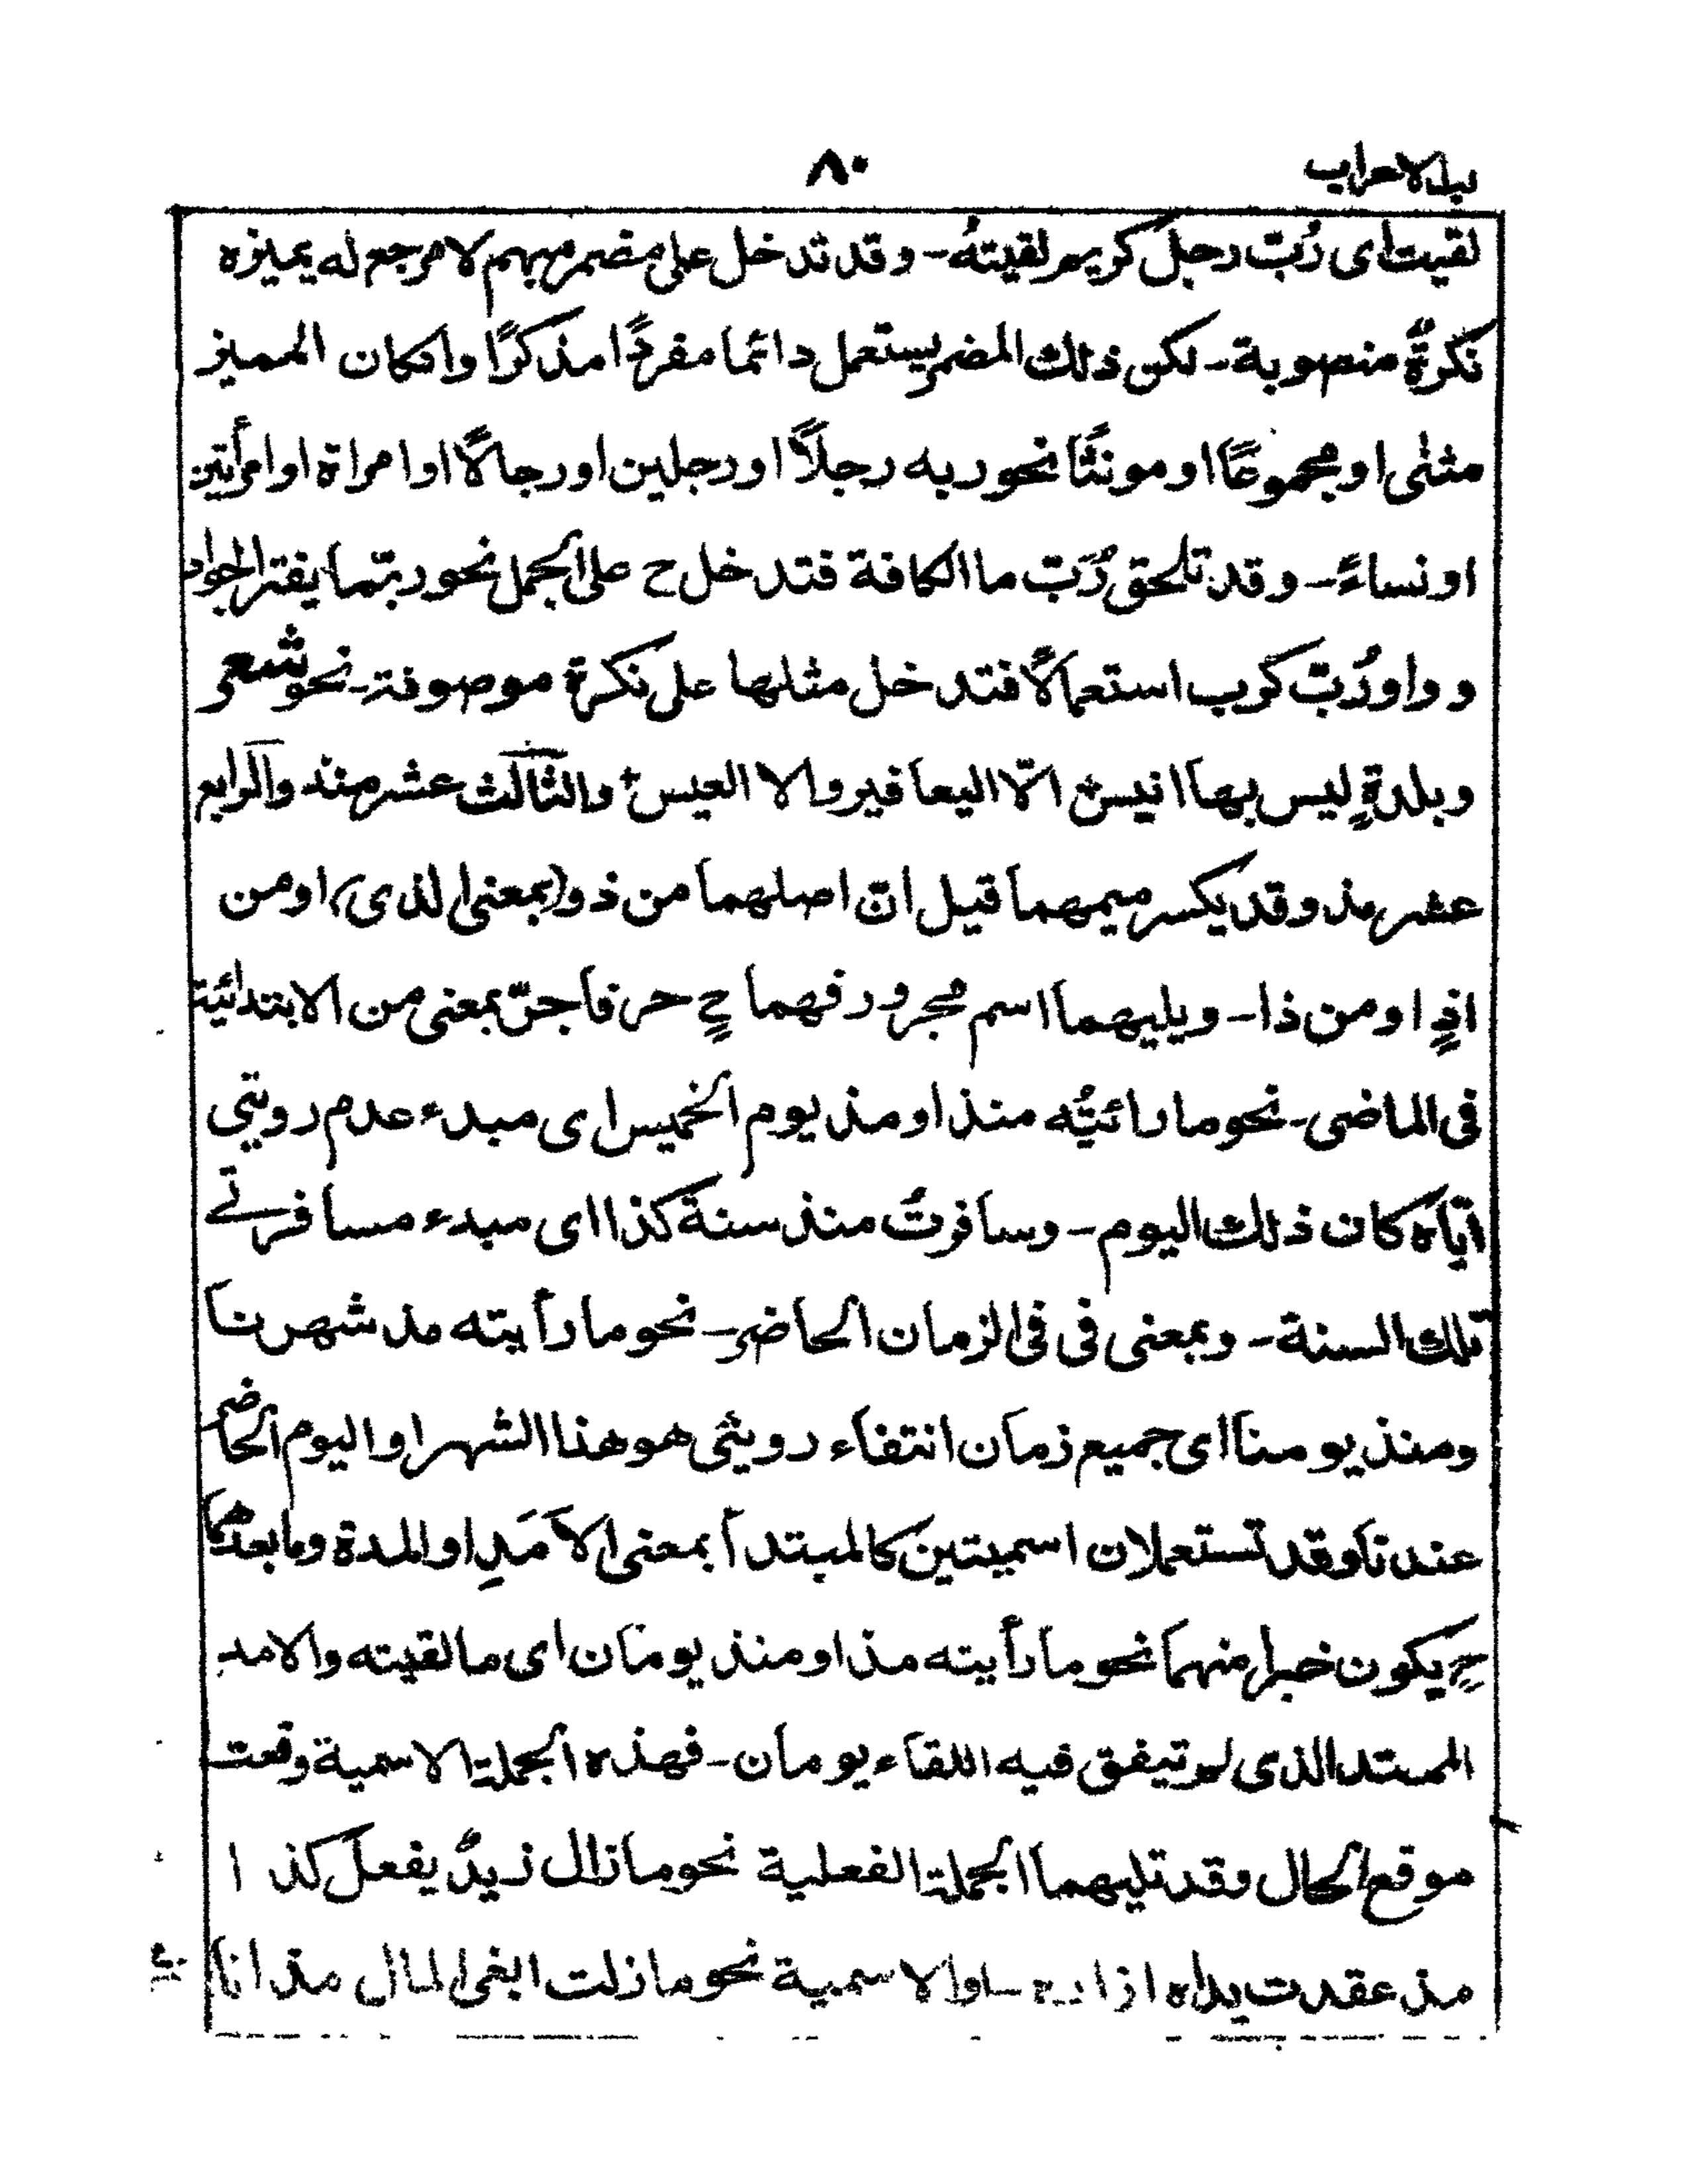 باب الاعراب ٨٠
لقيت اى رُبّ رجل كريم لقيتهُ - وقد تدخل على مضمر مبهم لا مرجع له يميزه
نكرةٌ منصوبة - لكن ذلك المضمر يستعمل دائما مفردًا مذكرًا وانكان المميز
مثنى او مجموعًا او مونثًا نحو ربه رجلاً او رجلين او رجالاً او امراة او امرأتين
او نساءً - وقد تلحق رُبّ ما الكافة فتدخل ح على الجمل نحو ربّما يفتر الجواد
و واو رُبّ كرب استعمالاً فتدخل مثلها على نكرة موصوفة - نحو شعر
وبلدةٍ ليس بها انيس ۞ الّا اليعافير والا العيس ۞ والثالث عشر منذ والرابع
عشر مذ وقد يكسر ميمهما قيل انّ اصلهما من ذو (بمعنى الذى) او من
اذٍ او من ذا - ويليهما اسم مجرور فهما ح حرفا جرّ بمعنى من الابتدائية
فى الماضى - نحو ما رائتُه منذ او مذ يوم الخميس اى مبدء عدم رويتى
ايّاه كان ذلك اليوم - وسافرتُ منذ سنة كذا اى مبدء مسافرتے
تلك السنة - وبمعنى فى فى الزمان الحاضر - نحو ما رأيته مذ شهرنا
ومنذ يومنا اى جميع زمان انتفاء رويتى هو هذا الشهر او اليوم الحاضر
عندنا وقد تستعملان اسميتين كالمبتدأ بمعنى الأمَدِ او المدة وما بعدهما
ح يكون خبرا منهما نحو ما رأيته مذ او منذ يومان اى ما لقيته والامد
الممتد الذى لم تيفق فيه اللقاء يومان - فهذه الجملة الاسمية وقعت
موقع الحال وقد تليهما الجملة الفعلية نحو ما زال زيدٌ يفعل كذا
مذ عقدت يداه ازاره - او الاسمية نحو ما زلت ابغى المال مذ انا